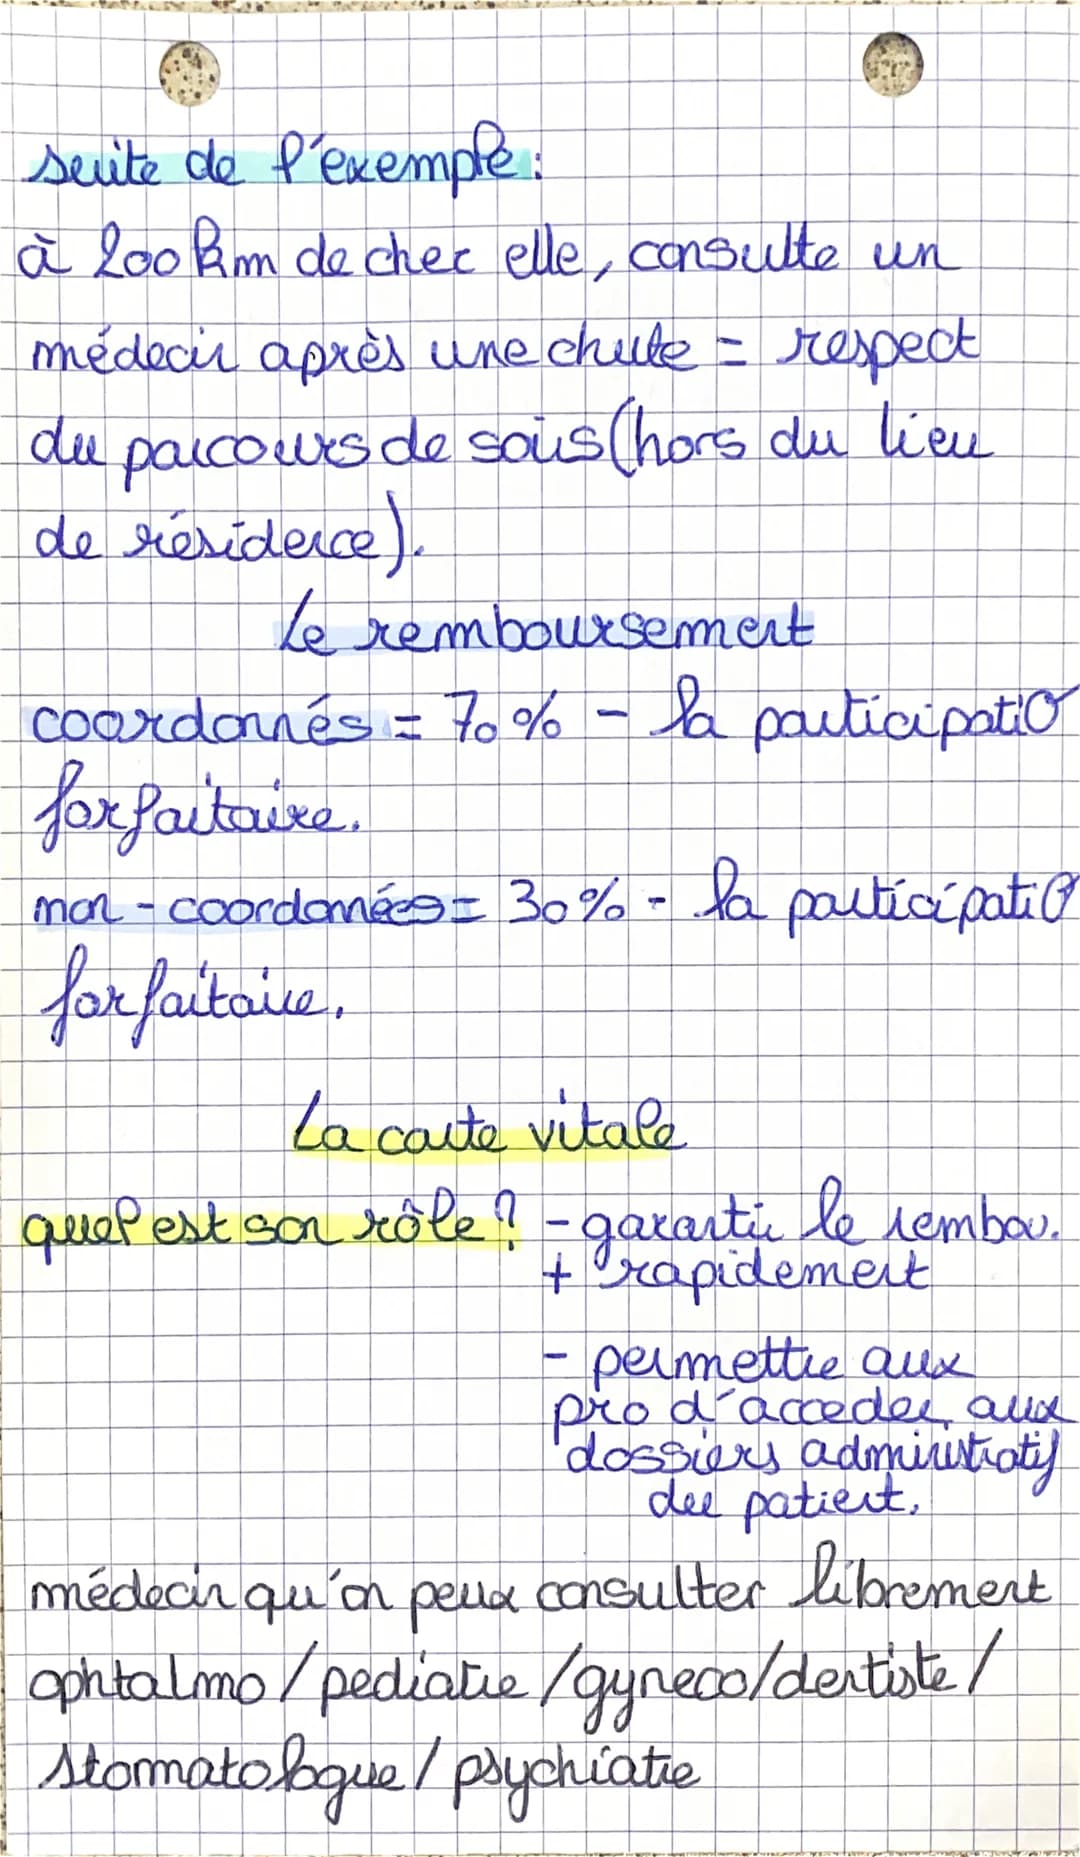 suite de l'exemple :
à 200 km de chec elle, consulte un
médecin après une chute = respect
du parcours de soins (hors du lieu
de résidence).
Le remboursement
coordonnés = 70 % - la participatio
forfaitaire.
non - coordonnées = 30 % - la participatio
forfaitaire.
La carte vitale
quel est son rôle ? - garantir le rembou.
+ rapidement
- permettre aux
pro d'acceder aux
dossiers administratif
du patient.
médecin qu'on peux consulter librement
ophtalmo / pediatre / gyneco / dentiste /
stomatologue / psychiatre